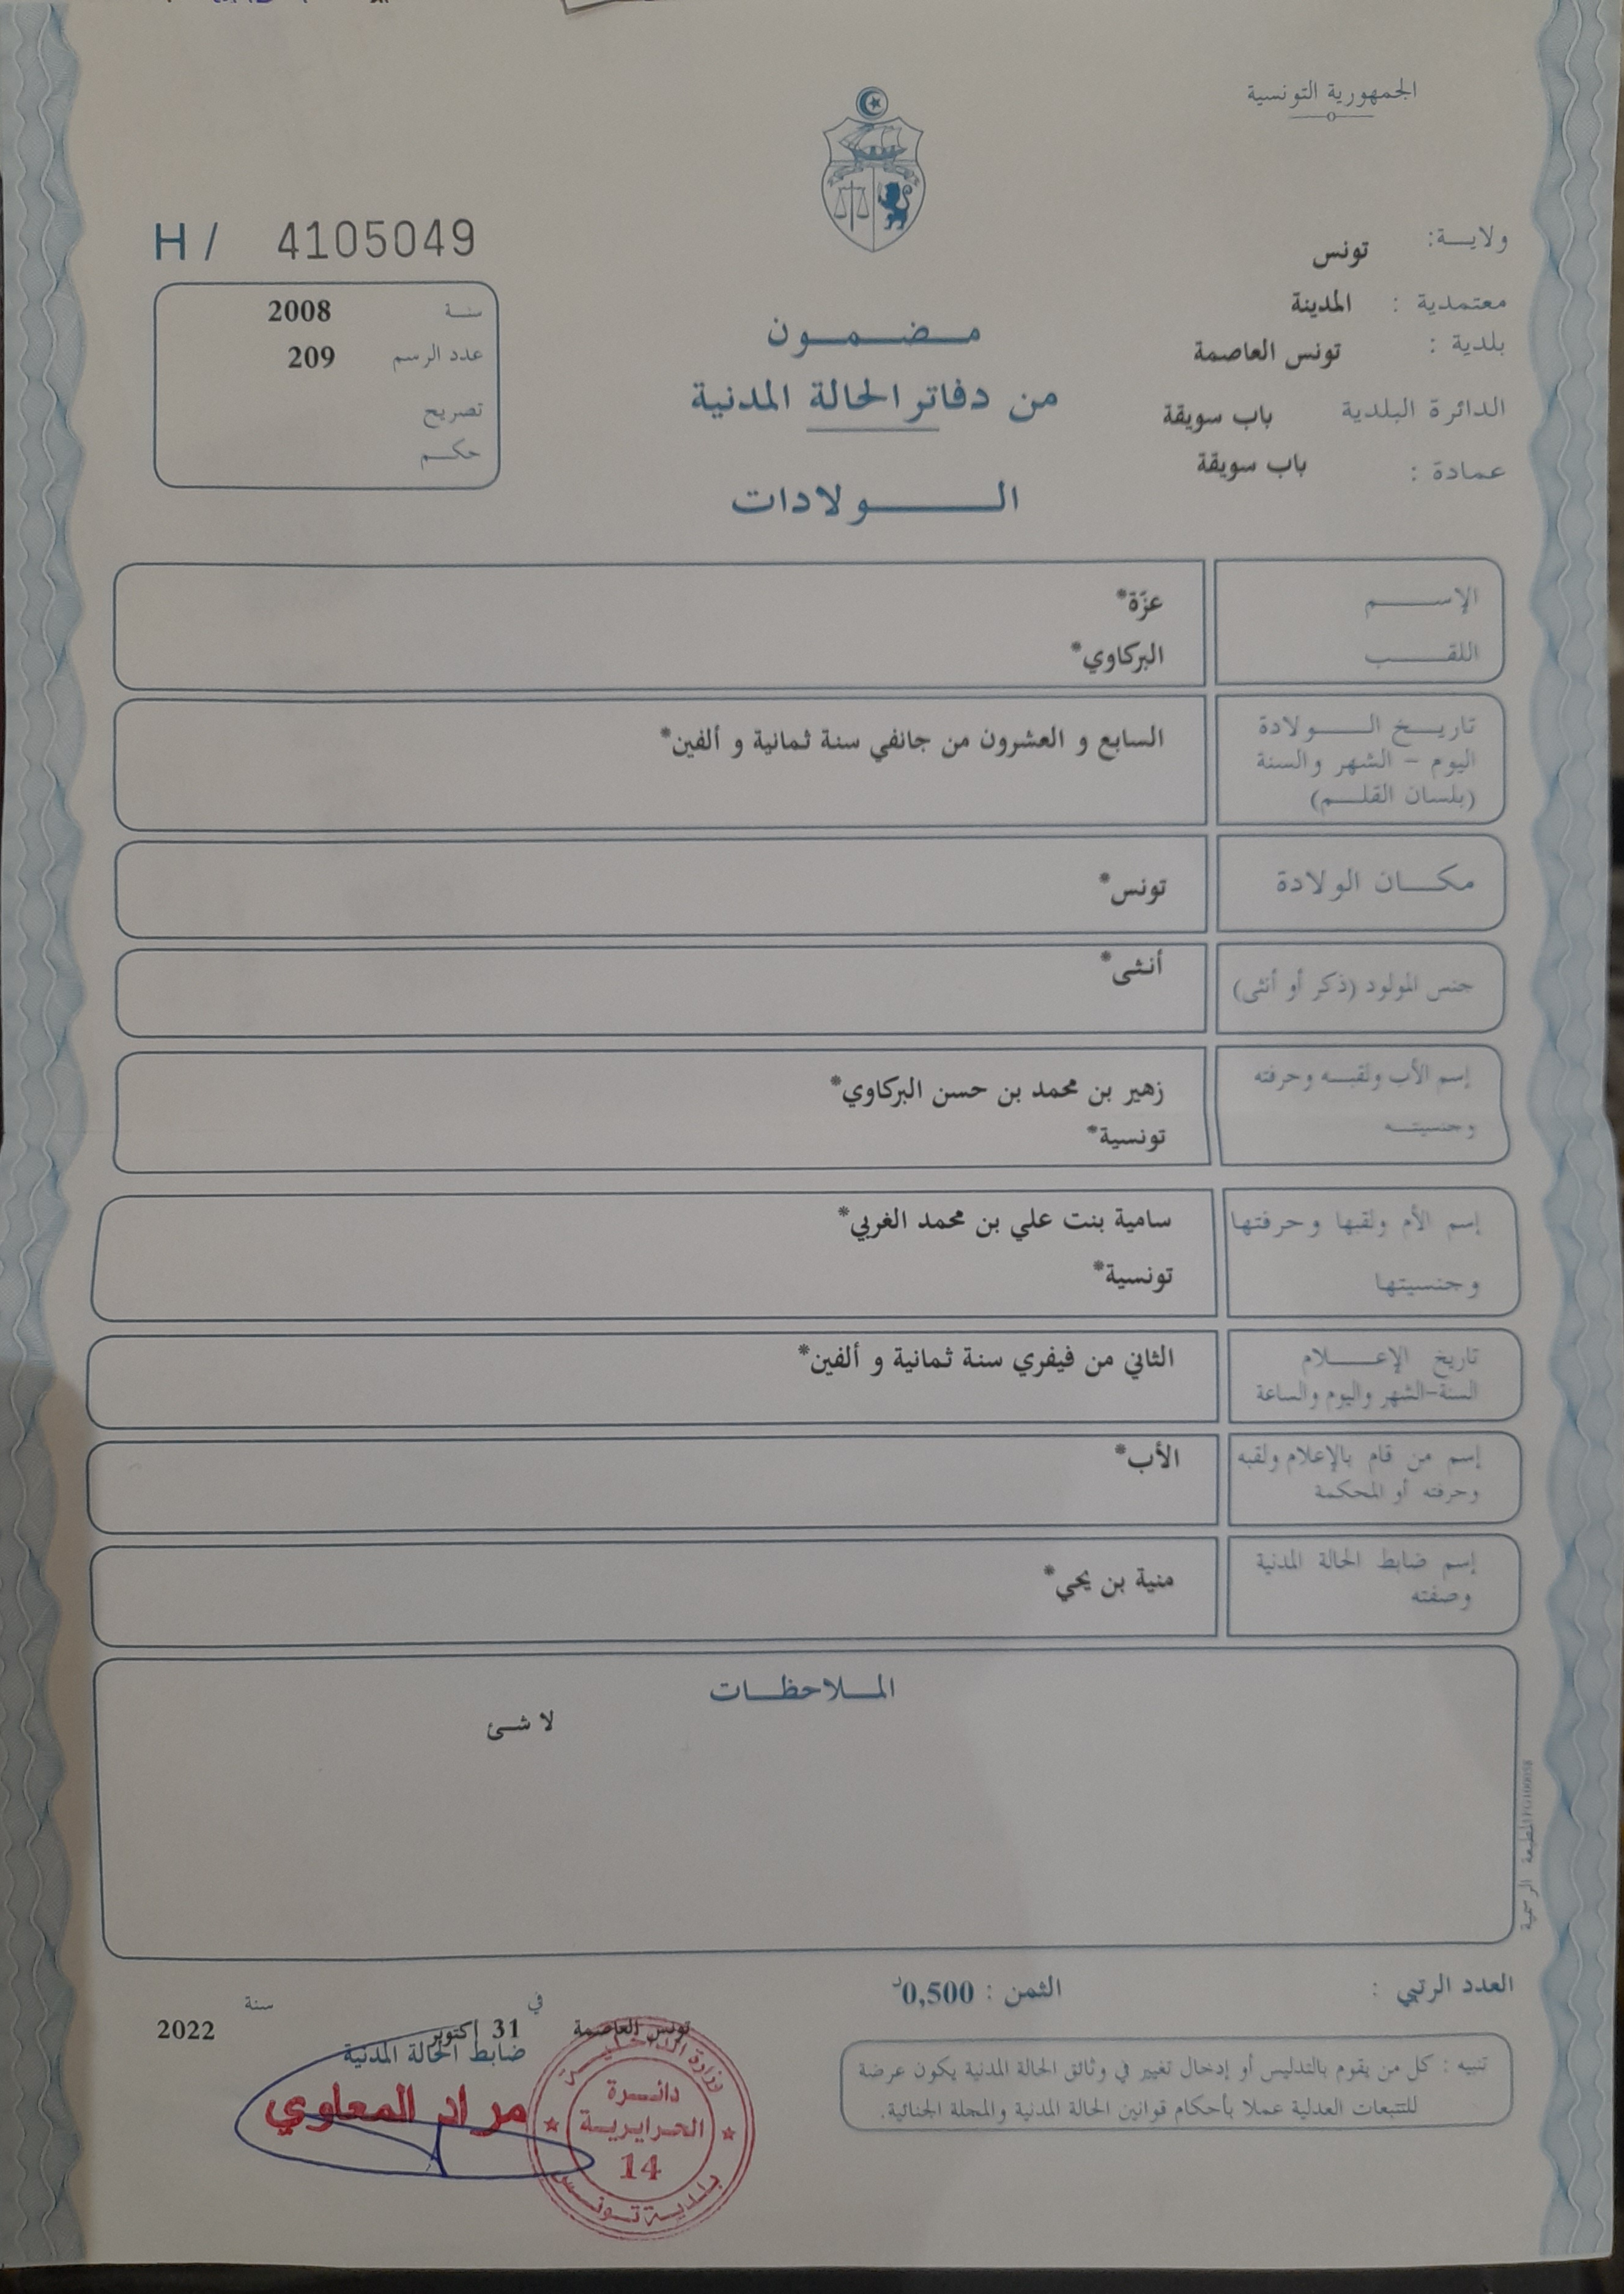 الجمهورية التونسية
ولايـــة: تونس
معتمدية : المدينة
بلدية : تونس العاصمة
الدائرة البلدية باب سويقة
عمادة : باب سويقة
H / 4105049
سنـــة 2008
عدد الرسم 209
تصريح
حكـــم
مـــضـــمـــون
من دفاتر الحالة المدنية
الـــــولادات
الإســـــم عزّة*
اللقـــــب البركاوي*
تاريـــخ الـــــولادة
اليوم - الشهر والسنة
(بلسان القلـــم)
السابع و العشرون من جانفي سنة ثمانية و ألفين*
مكـــان الولادة تونس*
جنس المولود (ذكر أو أنثى) أنثى*
إسم الأب ولقبـــه وحرفته
وجنسيتـــه
زهير بن محمد بن حسن البركاوي*
تونسية*
إسم الأم ولقبها وحرفتها
وجنسيتها
سامية بنت علي بن محمد الغربي*
تونسية*
تاريخ الإعـــــلام
السنة-الشهر واليوم والساعة
الثاني من فيفري سنة ثمانية و ألفين*
إسم من قام بالإعلام ولقبه
وحرفته أو المحكمة
الأب*
إسم ضابط الحالة المدنية
وصفته
منية بن يحي*
المـــلاحظـــات
لا شئ
المطبعة الرسمية
العدد الرتبي :
الثمن : 0,500د
تنبيه : كل من يقوم بالتدليس أو إدخال تغيير في وثائق الحالة المدنية يكون عرضة
للتتبعات العدلية عملا بأحكام قوانين الحالة المدنية والمجلة الجنائية.
في سنة
تونس العاصمة 31 اكتوبر 2022
ضابط الحالة المدنية
مراد المعاوي
وزارة الداخليـــة
دائـــرة
الحرايريـــة
14
بلديـــة تونـــس